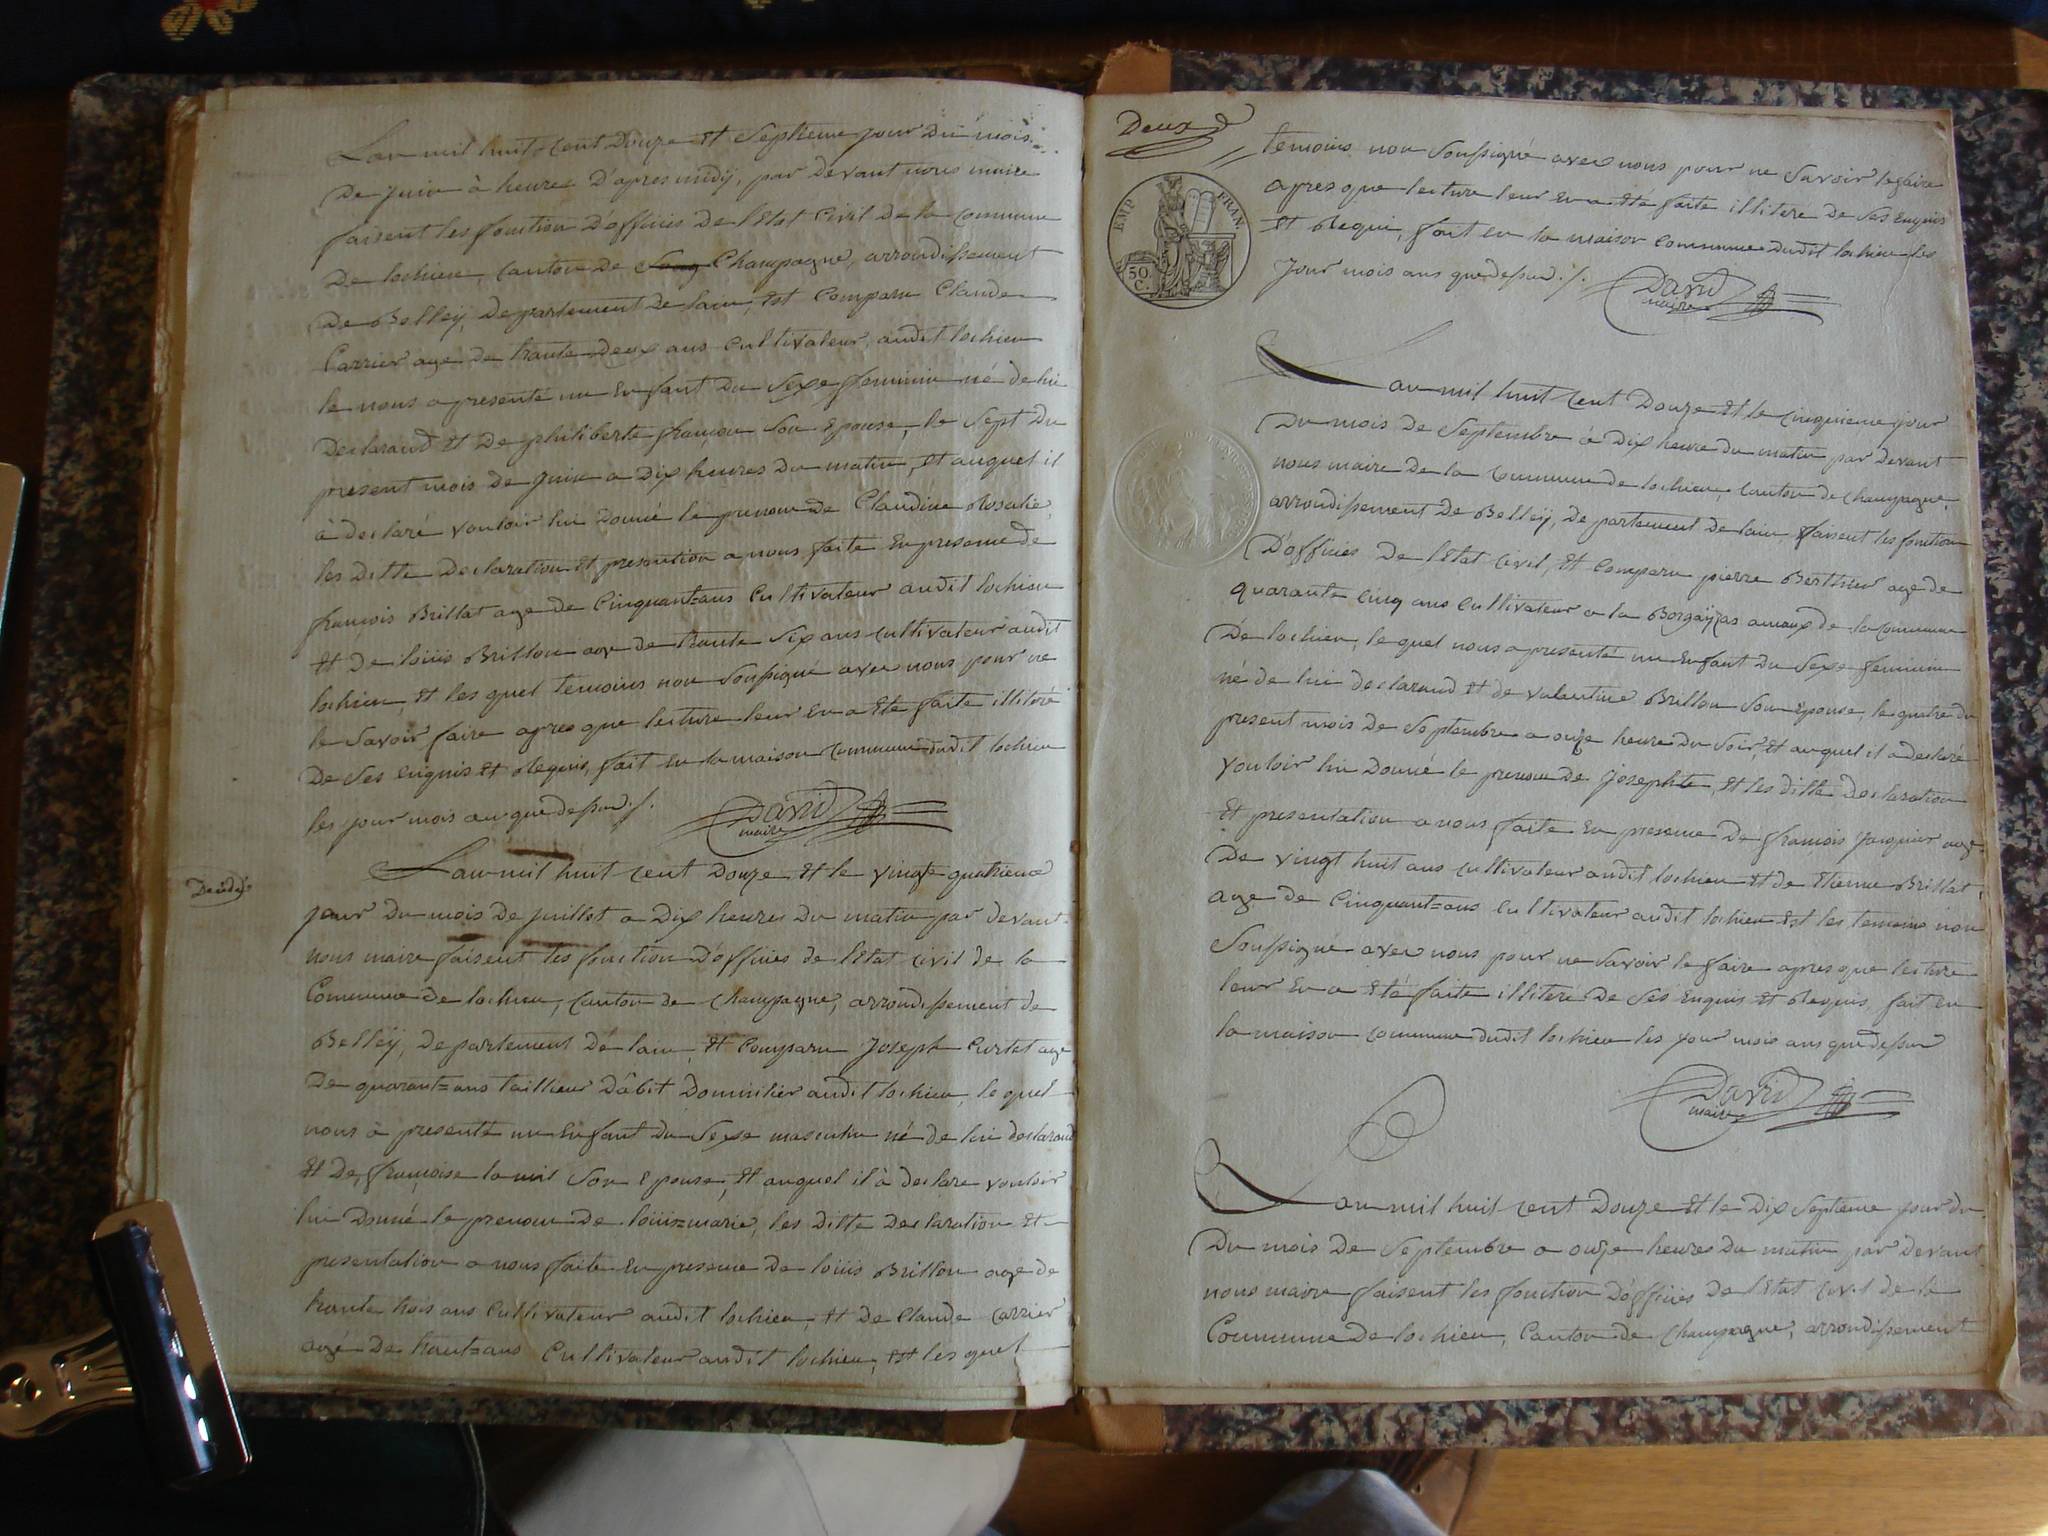 Lan mil huit cent Douze Et Septieme jour Du mois
De juin à heures D'apres midÿ, par devant nous maire
faisent les fonction D'officies De lEtat Civil De la Commune
De lochieu, Canton de Champagne, arrondissement
De Belleÿ, Departement de lain, Est Comparu Claude
Carrier agé de trante Deux ans Cultivateur, audit lochieu
le nous a presenté un Enfant Du Sexe feminin né de lui
Declarand Et De philiberte françon Son Epouse, le Sept Du
present mois De juin a Dix heures Du matin, Et auquel il
à declaré vouloir lui Donné le prenom De Claudine Rosalie
les Ditte Declaration Et presention a nous faite En presence de
françois Brillat age de Cinquant=ans Cultivateur audit lochieu
Et de loüis Brillon age de trante Six ans Cultivateur audit
lochieu, Et les quel temoins non Soussigné avec nous pour ne
le Savoir faire apres que lecture leur En a Eté faite illitéré
De Ses Enquis Et Requis, fait En la maison Commune dudit lochieu
les jour mois an que dessus ./.
David
maire
Décédé
Lan mil huit cent Douze Et le vingt quatrieme
jour Du mois De juillet a Dix heures Du matin par devant
nous maire faisent les fonction D'officies de lEtat Civil de la
Commune de lochieu, Canton de Champagne, arrondissement de
Belleÿ, Departement De lain, Et Comparu Joseph Curtet age
De quarant=ans taillieur D'âbit Domicilier audit lochieu, le quel
nous à presenté un Enfant Du Sexe masculin né de lui declarand
Et De françoise Son Epouse, Et auquel il à declaré vouloir
lui Donné le prenom De loüis=marie, les ditte declaration Et
presentation a nous faite En presence De loüis Brillon agé de
trante trois ans Cultivateur audit lochieu, Et De Claude Carrier
agé De trant=ans Cultivateur audit lochieu, Est les quel
Deux
temoins non Soussigné avec nous pour ne Savoir le faire
apres que lecture leur En a Eté faite illiteré De Ses Enquis
Et Requi, fait En la maison Commune dudit lochieu les
Jour mois ans que dessus ./.
David
maire
EMP. FRAN.
50.
C.
Lan mil huit cent Douze Et le Cinquieme jour
Du mois De Septembre à Dix heure Du matin par Devant
nous maire De la Commune De lochieu, Canton De Champagne,
arrondissement De Belleÿ, Departement De lain faisent les fonction
D'officies De lEtat Civil, Et Comparu pierre Berthier agé De
quarante Cinq ans Cultivateur a la De la Commune
De lochieu, le quel nous a presenté un Enfant Du Sexe feminin
né de lui declarand Et de valentine Brillon Son Epouse, le quatre du
present mois De Septembre a onze heure Du Soir, Et auquel il a declaré
vouloir lui Donné le prenom De Josephte, Et les ditte Declaration
Et presentation a nous faite En presence De françois Jacquier agé
De vingt huit ans Cultivateur audit lochieu Et de Etienne Brillat
age de Cinquant=ans Cultivateur audit lochieu Est les temoins non
Soussigné avec nous pour ne Savoir le faire apres que lecture
leur En a Eté faite illiteré De Ses Enquis Et Requis, fait En
la maison Commune dudit lochieu les jour mois ans que dessus
David
maire
Lan mil huit cent Douze Et le Dix Septieme jour du
Du mois De Septembre a onze heures Du matin par Devant
nous maire faisent les fonction D'officies De lEtat Civil de la
Commune De lochieu, Canton De Champagne, arrondissement